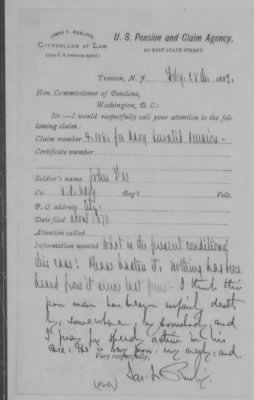 JAMES F. RUSLING,
COUNSELLOR AT LAW,
(Late U. S. Pension Agent.)
U. S. Pension and Claim Agency,
20 EAST STATE STREET
Trenton, N. J. 188
Hon. Commissioner of Pensions,
Washington, D. C.:
Sir:—I would respectfully call your attention to the fol-
lowing claim:
Claim number for Navy Invalid Pension-
Certificate number
Soldier's name John
Co. U.S. Navy Reg't Vols.
P. O. address City
Date filed
Attention called
Information wanted What is the present condition of
this case? Please hasten it, nothing has been
heard from it since last I think this
poor man has been unfairly dealt
by, somewhere by somebody, and
I pray for speedy action in his
case. He is very poor, very needy, and
Very respectfully,
(over) Jas. F. Rusling